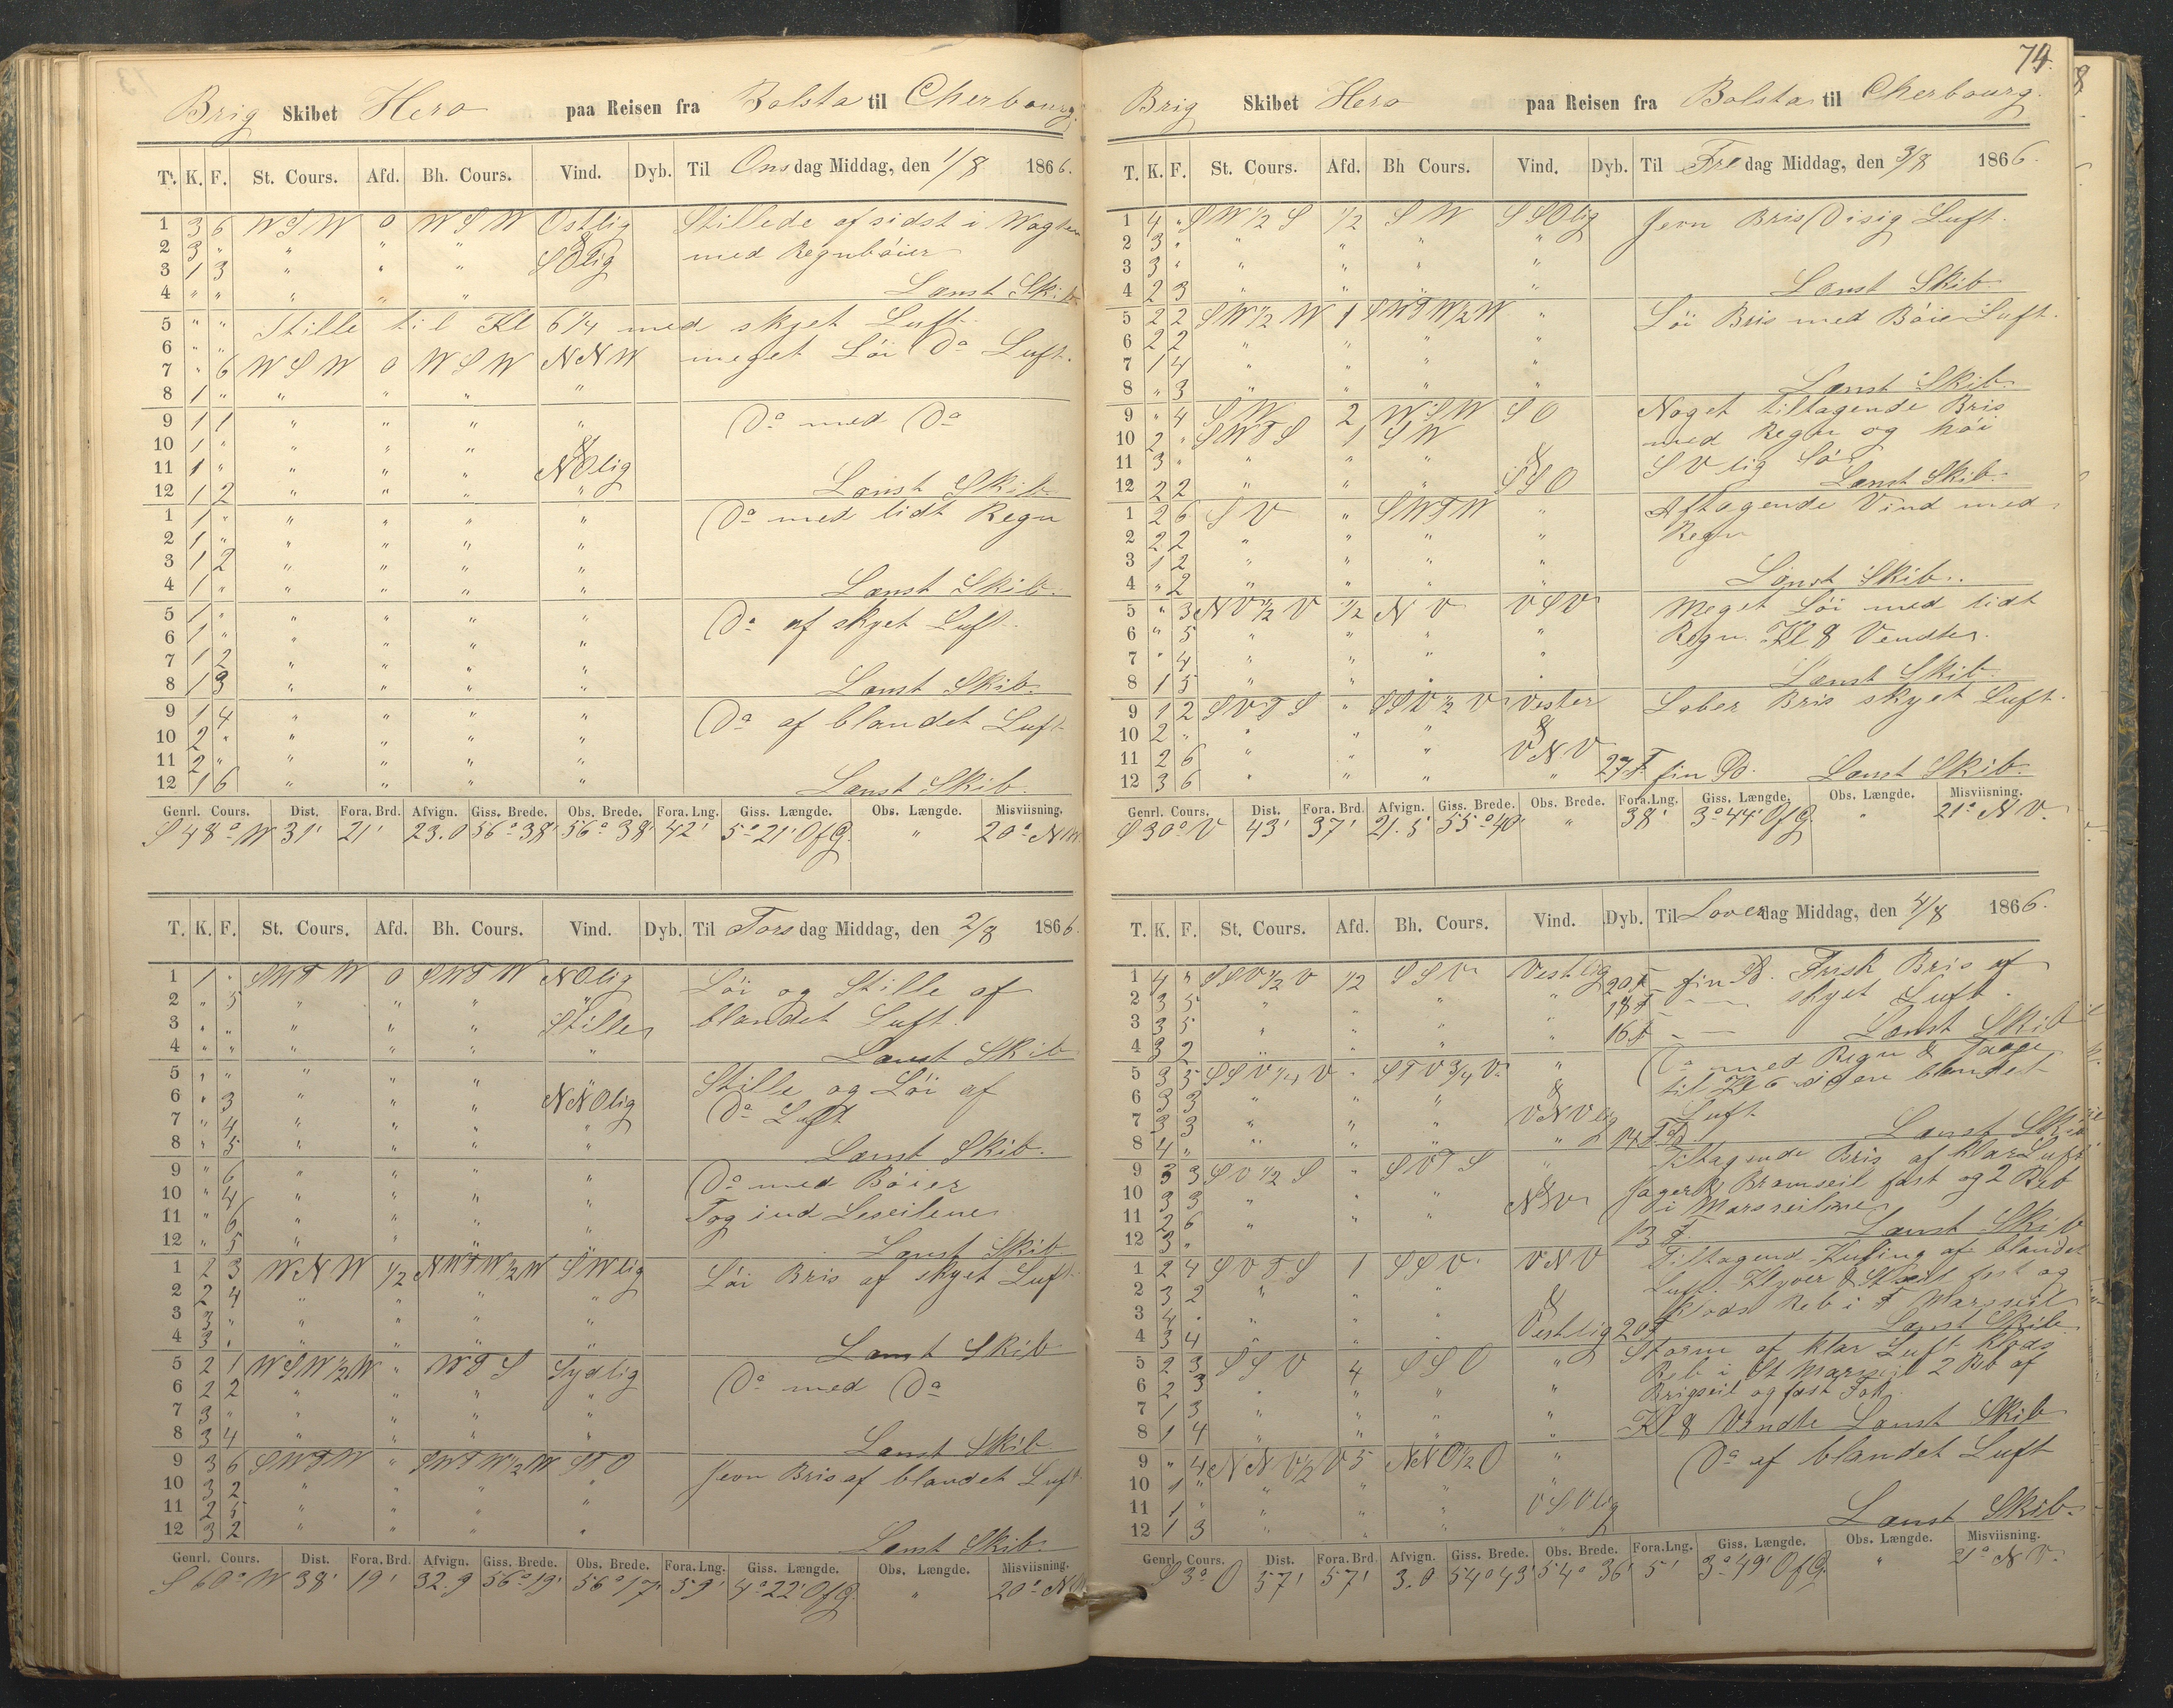 Brig Skibet Hero paa Reisen fra Bolsta til Cherbourg.
T. K. F. St. Cours. Afd. Bh. Cours. Vind. Dyb. Til Onsdag Middag, den 1/8 1866.
1 3 6 WSW 0 WSW Ostlig Stillede af sidst i Wagten
2 3 " " " " & med Regnbøier
3 1 3 " " " SOlig
4 " " " " " Lænst Skib
5 " " Stille til Kl 6 1/4 med skyet Luft
6 " "
7 " 6 WSW 0 WSW NNW meget Løi Do Luft.
8 1 " " " " "
9 1 1 " " " " Do med Do
10 1 " " " " &
11 1 " " " " NOlig
12 1 2 " " " " Lænst Skib
1 1 " " " " " Do med lidt Regn
2 1 " " " " "
3 1 2 " " " "
4 1 " " " " " Lænst Skib.
5 1 " " " " " Do af skyet Luft
6 1 " " " " "
7 1 2 " " " "
8 1 3 " " " " Lænst Skib.
9 1 4 " " " " Do af blandet Luft
10 2 " " " " "
11 2 " " " " "
12 1 6 " " " " Lænst Skib.
Genrl. Cours. Dist. Fora. Brd. Afvign. Giss. Brede. Obs. Brede. Fora. Lng. Giss. Længde. Obs. Længde. Misviisning.
S 48° W 31' 21' 23.0 56° 38' 56° 38' 42' 5° 21' OfG. " 20° NW.
T. K. F. St. Cours. Afd. Bh. Cours. Vind. Dyb. Til Torsdag Middag, den 2/8 1866.
1 1 " SWTW 0 SWTW NOlig Løi og Stille af
2 " 5 " " " " blandet Luft.
3 " " " " " Stille
4 " " " " " " Lænst Skib
5 " " " " " Stille og Løi af
6 " 3 " " " NNOlig Do Luft
7 " 4 " " " "
8 " 5 " " " " Lænst Skib.
9 " 6 " " " " Do med Bøier
10 " 4 " " " " Tog ind Leseilene
11 " 6 " " " "
12 " 5 " " " Lænst Skib
1 2 3 WNW 1/2 NWTW 1/2 W SWlig Løi Bris af skyet Luft
2 2 4 " " " "
3 3 " " " " "
4 3 " " " " " Lænst Skib
5 2 1 WSW 1/2 W " WTS Sydlig Do med Do
6 2 2 " " " "
7 3 " " " " "
8 3 4 " " " " Lænst Skib
9 3 6 SWTW " SWTW 1/2 W STO Jevn Bris af blandet Luft
10 3 2 " " " "
11 2 5 " " " "
12 3 2 " " " " Lænst Skib
Genrl. Cours. Dist. Fora. Brd. Afvign. Giss. Brede. Obs. Brede. Fora. Lng. Giss. Længde. Obs. Længde. Misviisning.
S 60° W 38' 19' 32.9 56° 19' 56° 17' 59' 4° 22' OfG. " 20° NW
74.
Brig Skibet Hero paa Reisen fra Bolsta til Cherbourg.
T. K. F. St. Cours. Afd. Bh Cours. Vind. Dyb. Til Fredag Middag, den 3/8 1866.
1 4 " SW 1/2 S 1/2 SW SSOlig Jevn Bris Disig Luft.
2 3 " " " " "
3 3 " " " " "
4 2 3 " " " " Lænst Skib
5 2 2 SW 1/2 W 1 SWTW 1/2 W " Løi Bris med Bøie Luft.
6 2 2 " " " "
7 1 4 " " " "
8 " 3 " " " " Lænst Skib.
9 " 4 SW 2 WSW SO Noget tiltagende Bris
10 2 " SWTS 1 SW med Regn og høi
11 3 " " " " & SVlig Sø
12 2 2 " " " SSO Lænst Skib.
1 2 6 SV " SWTW " Aftagende Vind med
2 2 2 " " " " Regn
3 1 2 " " " "
4 " 2 " " " " Lænst Skib.
5 " 3 NV 1/2 V 1/2 NV VSV Meget Løi med lidt
6 " 5 " " " " Regn. Kl 8 Vendter.
7 " 4 " " " "
8 1 5 " " " " Lænst Skib.
9 1 2 SVTS " SSV 1/2 V Vester Laber Bris skyet Luft.
10 2 " " " " &
11 2 6 " " " VNV
12 3 6 " " " " 27 F fin Do. Lænst Skib.
Genrl. Cours. Dist. Fora. Brd. Afvign. Giss. Brede. Obs. Brede. Fora. Lng. Giss. Længde. Obs. Længde. Misviisning.
S 30° V 43' 37' 21.5 55° 40' " 38' 3° 44' OfG. " 21° NV.
T. K. F. St. Cours. Afd. Bh. Cours. Vind. Dyb. Til Løverdag Middag, den 4/8 1866.
1 4 " SSV 1/2 V 1/2 SSV Vestlig 20 F fin Frisk Bris af
2 3 5 " " " " 18 F skyet Luft.
3 3 5 " " " " 16 F
4 3 2 " " " Lænst Skib
5 3 5 SSV 1/4 V " STV 3/4 V " Do med Regn & Taage
6 3 3 " " " & til Kl 6 siden blandet
7 3 3 " " " VNVlig Luft
8 4 " " " " " 14 F Lænst Skib
9 3 3 SV 1/2 S " SVTS " Tiltagende Bris af klar Luft
10 3 3 " " " & Jager & Bramseil fast og 2 Reb
11 2 6 " " " NV i Marsseilene
12 3 " 13 F. Lænst Skib
1 2 4 SVTS 1 SSV VNV Tiltagend Kuling af blandet
2 3 2 " " " Luft Klyver & fast og
3 4 " " " " & Klods Reb i F Marsseil
4 3 4 " " " Vestlig 20 F Lænst Skib
5 2 3 SSV 4 SSO " Storm af klar Luft Klods
6 2 3 " " " " Reb i St Marsseil 2 Reb af
7 1 3 " " " " Brigseil og fast Fok
8 1 4 " " " " Kl 8 Vendte Lænst Skib
9 " 4 NNV 1/2 V 5 NNO 1/2 O " Do af blandet Luft
10 1 " " " " "
11 1 " " " " VSVlig
12 1 3 " " " Lænst Skib.
Genrl. Cours. Dist. Fora. Brd. Afvign. Giss. Brede. Obs. Brede. Fora. Lng. Giss. Længde. Obs. Længde. Misviisning.
S 3° O 57' 57' 3.0 54° 43' 54° 36' 5' 3° 49' OfG. " 21° NV.